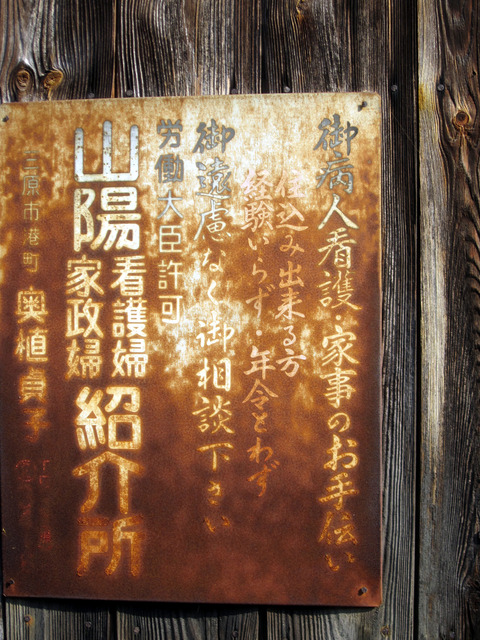 御病人看護・家事のお手伝い
住込み出来る方
経験いらず・年令とわず
御遠慮なく御相談下さい
労働大臣許可
山陽看護婦家政婦紹介所
三原市港町 奥植貞子